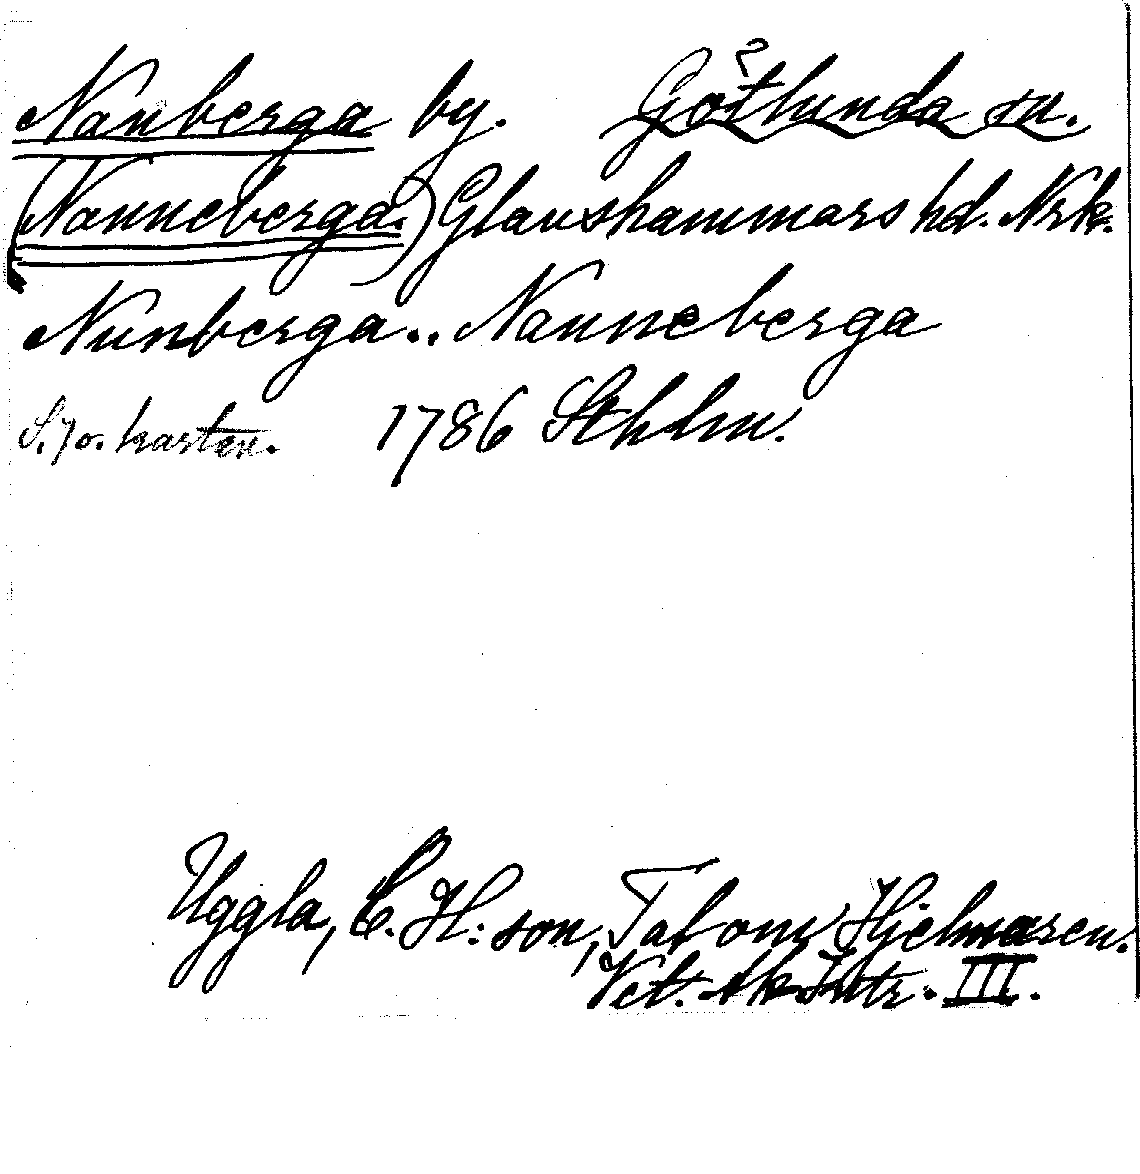 Nanberga by. Götlunda sn.
(Nanneberga.) Glanshammars hd. Nrk.
Nunberga.. Nanneberga
S. 70. karten. 1786 Sthlm.
Uggla, C. H:son, Tal om Hjelmaren.
Vet. Ak Intr. III.